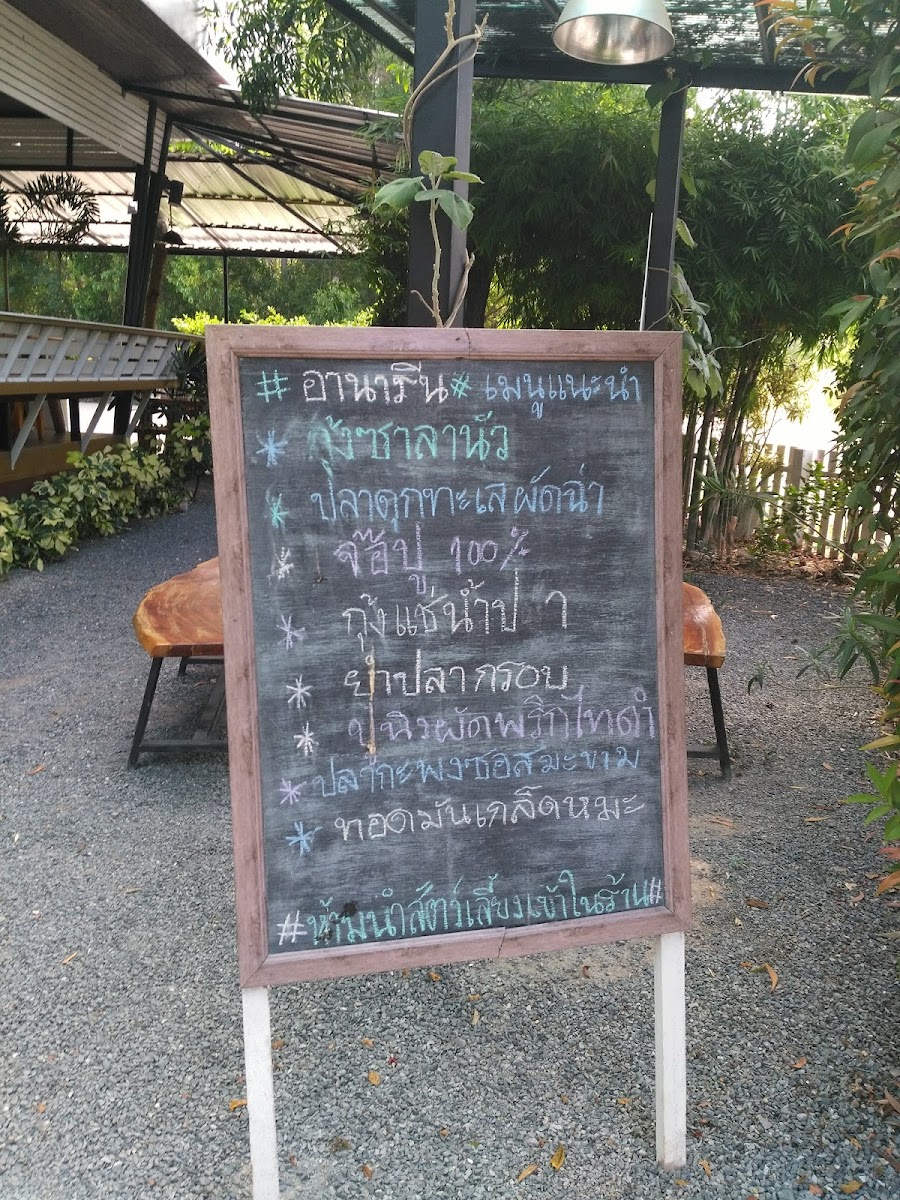 # อานารีน * เมนูแนะนำ
* กุ้งซาลานัว
* ปลาดุกทะเลผัดฉ่า
* จ๊อปู 100%
* กุ้งแช่น้ำป า
* ยำปลากรอบ
* ปูนิ่มผัดพริกไทดำ
* ปลากะพงซอสมะขาม
* ทอดมันเกล็ดหมะ
#ห้ามนำสัตว์เลี้ยงเข้าในร้าน#